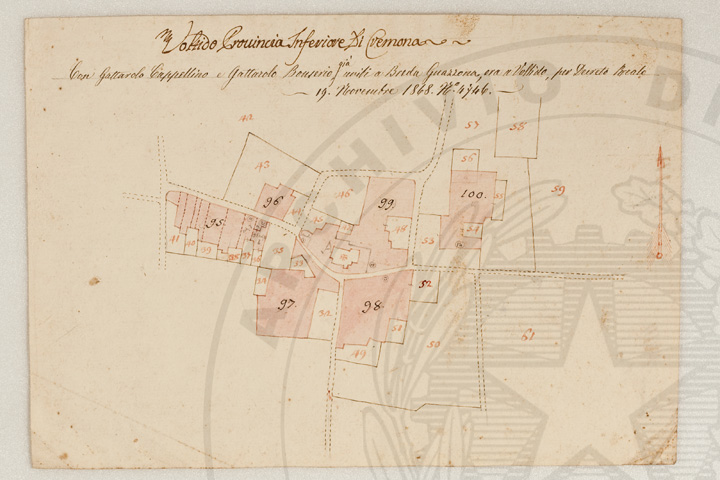 Voltido Provincia Inferiore Di Cremona
Con Gattarolo Cappellino e Gattarolo Bonserio già uniti a Breda Guazzona, ora a Voltido, per Decreto Reale
19. Novembre 1868. N.º 4746.
42
57
58
43
56
59
96
46
99
100.
55
44
95.
45
48
54
41
40
39
53
33
97.
32
98.
52
51
49
50
61
ARCHIVIO DI